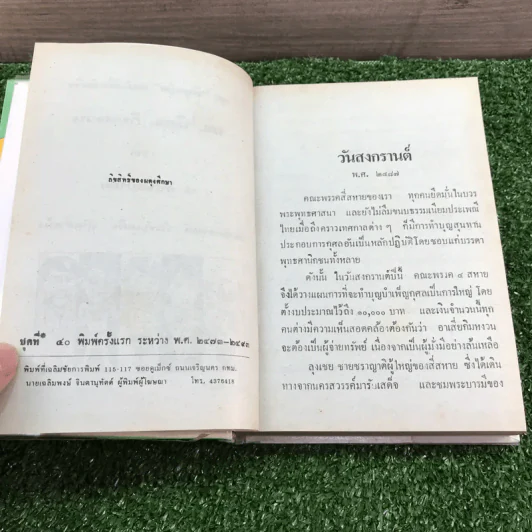 ลิขสิทธิ์ของผดุงศึกษา
ชุดที่ ๔๐ พิมพ์ครั้งแรก ระหว่าง พ.ศ. ๒๔๗๑-๒๔๙๓
พิมพ์ที่เฉลิมชัยการพิมพ์ 115-117 ซอยคูเม็กซ์ ถนนเจริญนคร กทม.
นายเฉลิมพงษ์ จินดานุทัตต์ ผู้พิมพ์ผู้โฆษณา โทร. 4376418
วันสงกรานต์
พ.ศ. ๒๔๘๗
คณะพรรคสี่สหายของเรา ทุกคนยึดมั่นในบวร
พระพุทธศาสนา และยังไม่ลืมขนบธรรมเนียมประเพณี
ไทยเมื่อถึงคราวเทศกาลต่าง ๆ ที่มีการทำบุญสุนทาน
ประกอบการกุศลอันเป็นหลักปฏิบัติโดยชอบแก่บรรดา
พุทธศานิกชนทั้งหลาย
ดังนั้น ในวันสงกรานต์ปีนี้ คณะพรรค ๔ สหาย
จึงได้วางแผนการที่จะทำบุญบำเพ็ญกุศลเป็นการใหญ่ โดย
ตั้งงบประมาณไว้ถึง ๑๐,๐๐๐ บาท และเงินจำนวนนี้ทุก
คนต่างมีความเห็นสอดคล้องต้องกันว่า อาเสี่ยกิมหงวน
จะต้องเป็นผู้จ่ายทรัพย์ เนื่องจากเป็นผู้มั่งมีอย่างล้นเหลือ
ลุงเชย ชายชราญาติผู้ใหญ่ของสี่สหาย ซึ่งได้เดิน
ทางจากนครสวรรค์มารับเสด็จ และชมพระบารมีของ